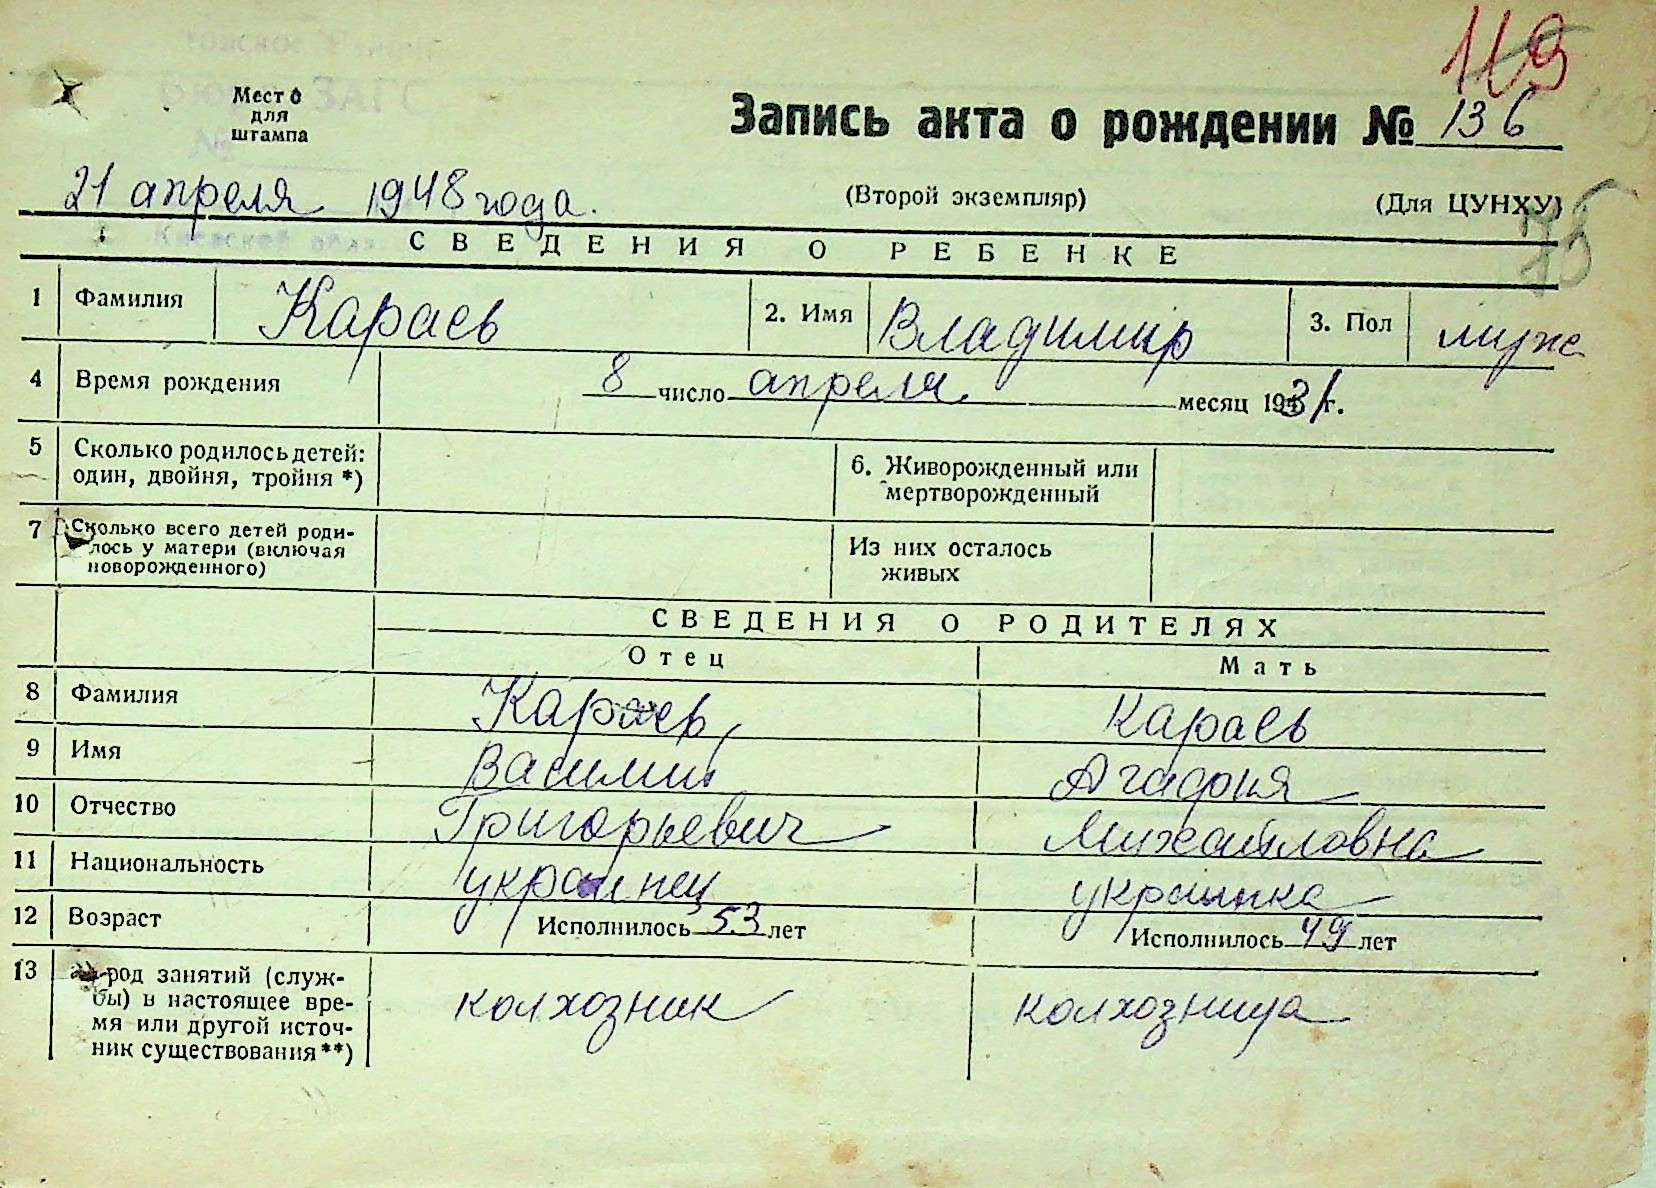 119
Место
для
штампа
Запись акта о рождении № 136
21 апреля 1948 года.
(Второй экземпляр)
(Для ЦУНХУ)
СВЕДЕНИЯ О РЕБЕНКЕ
1 Фамилия Караев 2. Имя Владимир 3. Пол муж
4 Время рождения 8 число апреля месяц 1931 г.
5 Сколько родилось детей:
один, двойня, тройня *)
6. Живорожденный или
мертворожденный
7 Сколько всего детей роди-
лось у матери (включая
новорожденного)
Из них осталось
живых
СВЕДЕНИЯ О РОДИТЕЛЯХ
Отец Мать
8 Фамилия Караев Караев
9 Имя Василий Агафия
10 Отчество Григорьевич Михайловна
11 Национальность украинец украинка
12 Возраст Исполнилось 53 лет Исполнилось 49 лет
13 род занятий (служ-
бы) в настоящее вре-
мя или другой источ-
ник существования **)
колхозник колхозница